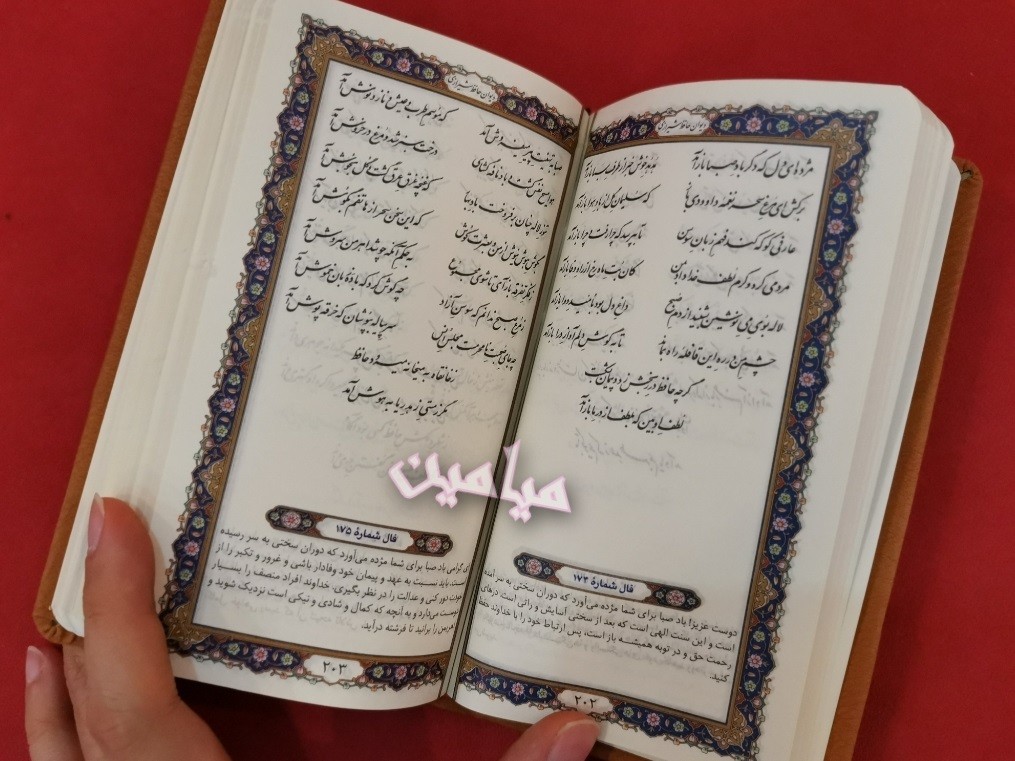 دیوان حافظ شیرازی
مژده ای دل که دگر باد صبا بازآمد هدهد خوش خبر از طرف سبا بازآمد
برکش ای مرغ سحر نغمه داودی باز که سلیمان گل از باد هوا بازآمد
عارفی کو که کند فهم زبان سوسن تا بپرسد که چرا رفت چرا بازآمد
مردمی کرد و کرم لطف خداداد بمن کان بت ماه رخ از راه وفا بازآمد
لاله بوی می نوشین بشنید از دم صبح داغ دل بود بامید دوا بازآمد
چشم من در ره این قافله راه بماند تا به گوش دلم آواز درا بازآمد
گرچه حافظ در رنجش زد و پیمان بشکست
لطف او بین که بلطف از در ما بازآمد
فال شمارهٔ ۱۷۴
دوست عزیز! باد صبا برای شما مژده می‌آورد که دوران سختی به سر آمده
است و این سنت الهی است که بعد از سختی آسایش و راتی است درهای
رحمت حق و در توبه همیشه باز است، پس ارتباط خود را با خداوند حفظ
کنید.
۲۰۲
دیوان حافظ شیرازی
صبا به تهنیت پیر میفروش آمد که موسم طرب و عیش و ناز و نوش آمد
هوا مسیح نفس گشت و باد نافه گشای درخت سبز شد و مرغ در خروش آمد
تنور لاله چنان برفروخت باد بهار که غنچه غرق عرق گشت و گل بجوش آمد
بگوش هوش نیوش از من و بعشرت کوش که این سخن سحر از هاتفم بگوش آمد
ز فکر تفرقه بازآی تا شوی مجموع به حکم آنکه چو شد اهرمن سروش آمد
ز مرغ صبح ندانم که سوسن آزاد چه گوش کرد که با ده زبان خموش آمد
چه جای صحبت نامحرمست مجلس انس سر پیاله بپوشان که خرقه پوش آمد
ز خانقاه به میخانه میرود حافظ
مگر ز مستی زهد ریا به هوش آمد
فال شمارهٔ ۱۷۵
ی گرامی باد صبا برای شما مژده می‌آورد که دوران سختی به سر رسیده
است، باید نسبت به عهد و پیمان خود وفادار باشی و غرور و تکبر را از
خودت دور کنی و عدالت را در نظر بگیری. خداوند افراد منصف را بسیار
دوست می‌دارد و به آنچه که کمال و شادی و نیکی است نزدیک شوید و
اهریمن را برانید تا فرشته درآید.
۲۰۳
میامین